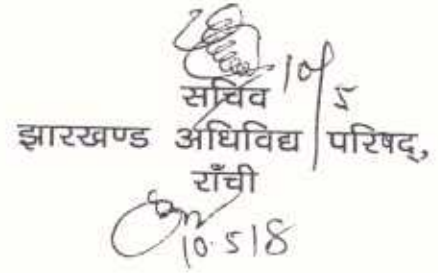 10/5
सचिव
झारखण्ड अधिविद्य परिषद्,
राँची
10.5.18